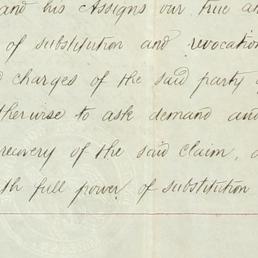 and his Assigns our true an
of substitution and revocation
charges of the said party
otherwise to ask demand and
recovery of the said claim, a
th full power of substitution